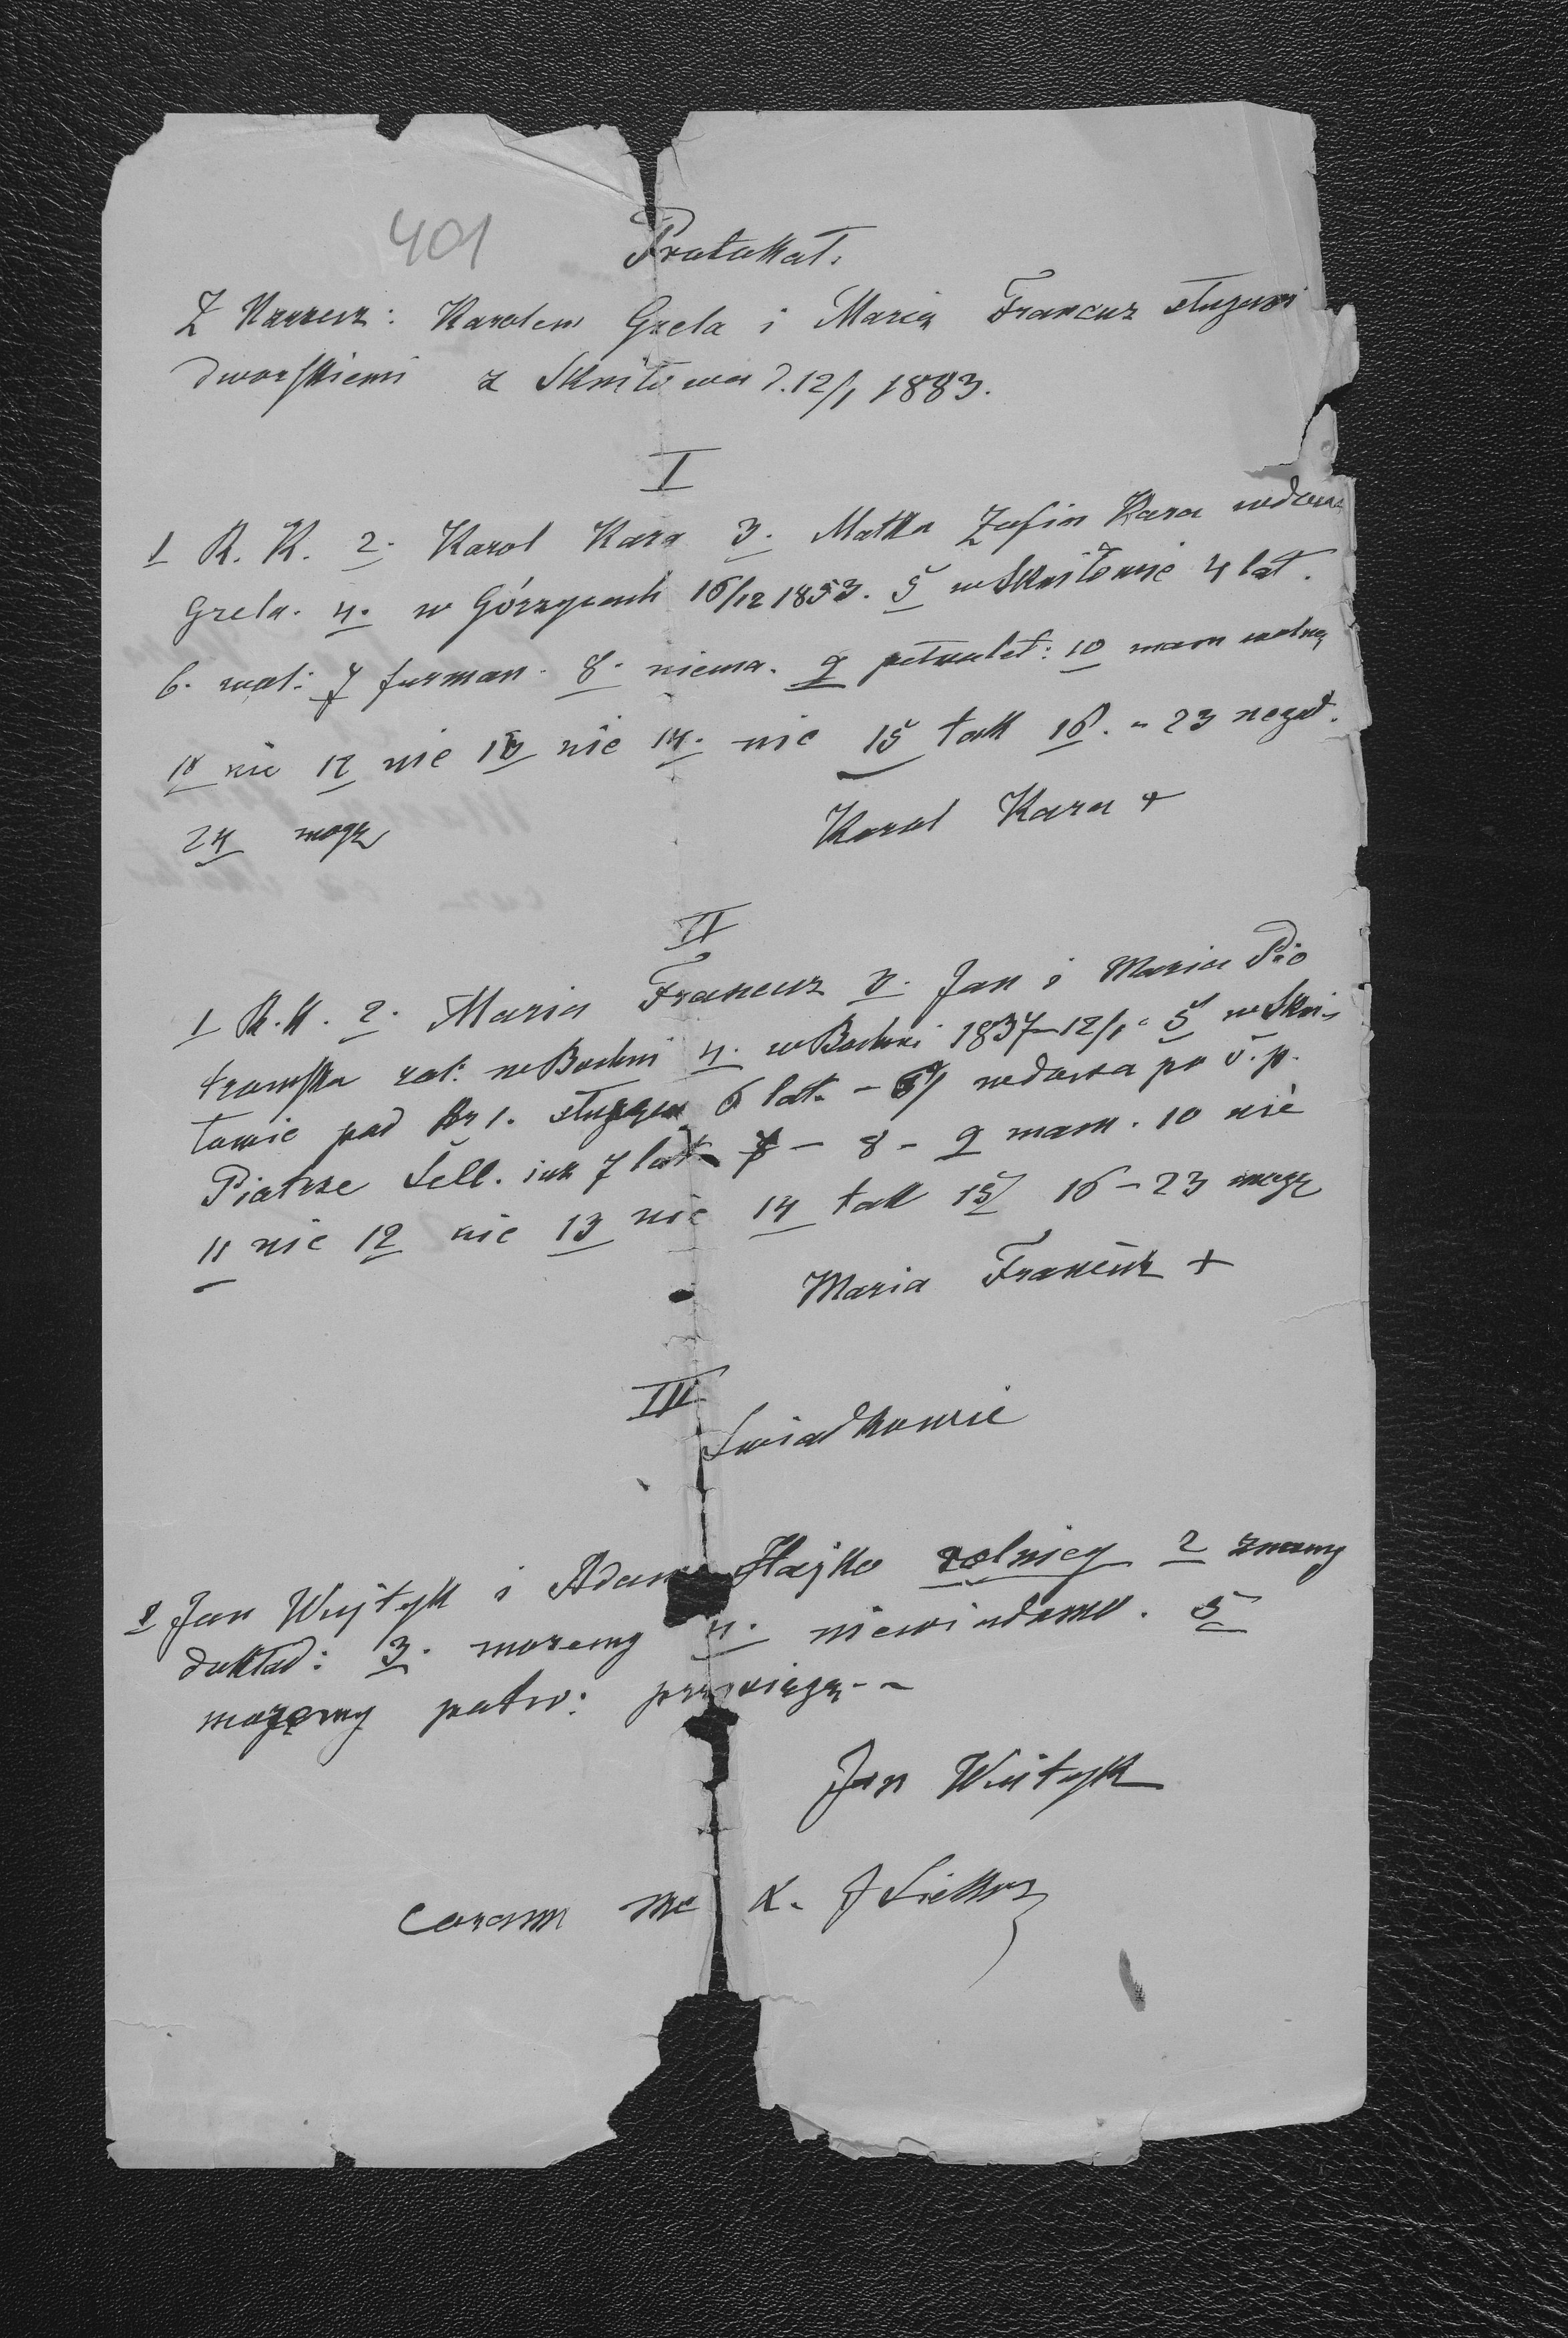 401
Protokoł.
Z Narzecz: Karolem Grela i Marią Francuz sługami
dworskiemi z Skniłowa d. 12/1 1883.
I
1 R. K. 2. Karol Kara 3. Matka Zofia Kara wdowa
Grela. 4. w Górzycach 16/12 1853. 5 w Skniłowie 4 lat.
6. wol: 7 furman. 8. niema. 9 10 mam wolną
11 nie 12 nie 13 nie 14. nie 15 tak 16. - 23 negat.
24 mogę
Karol Kara +
II
1 R. K. 2. Maria Francuz 3. Jan i Maria Pio
trowska rol: w Bochni 4. w Bochni 1837 12/1. 5 w Skni-
łowie pod Nr 1. 6 lat. - 6 wdowa po ś. p.
Piotrze Sell. już 7 lat 7 - 8 - 9 mam. 10 nie
11 nie 12 nie 13 nie 14 tak 15 16 - 23 mogę
Maria Francuz +
III
Świadkowie
1 Jan Wujtyk i Adam Hajko rolnicy 2 znamy
dokład: 3. możemy 4. niewiadomo. 5
możemy potw: przysięgą. -
Jan Wujtyk
coram me X. J